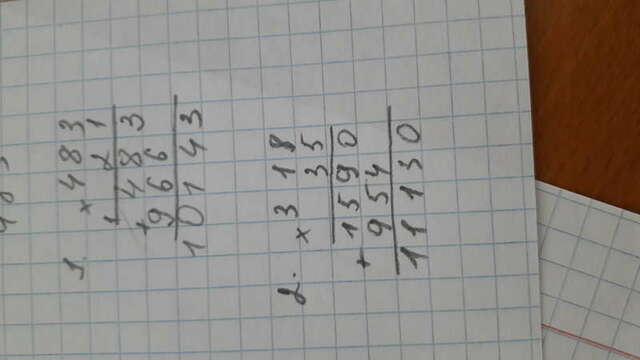 1. × 483
21
1
+ 483
966
10143
2. × 318
35
+ 1590
954
11130